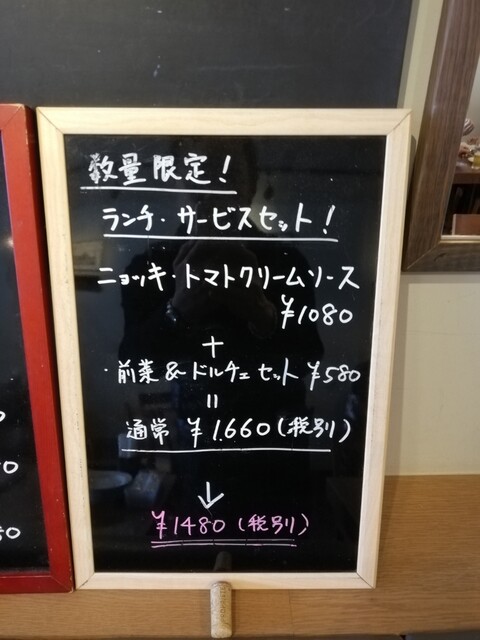 数量限定!
ランチ・サービスセット!
ニョッキ・トマトクリームソース
¥1080
+
・前菜&ドルチェセット ¥580
=
通常 ¥1.660(税別)
↓
¥1480(税別)